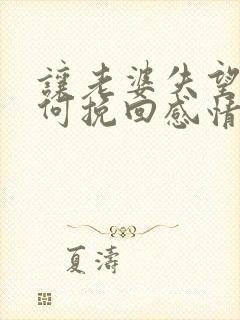 讓老婆失望
何挽回感情
夏濤